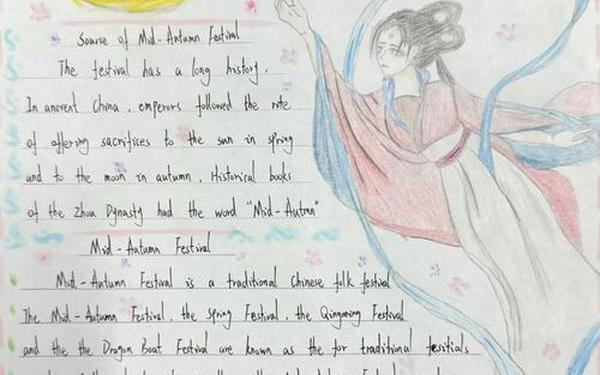 Sourse of Mid-Autumn Festival
The festival has a long history.
In ancient China, emperors followed the rite
of offering sacrifices to the sun in spring
and to the moon in autumn. Historical books
of the Zhou Dynasty had the word "Mid-Autmn"
Mid-Autumn Festival
Mid-Autumn Festival is a traditional Chinese folk festival
The Mid-Autumn Festival, the Spring Festival, the Qingming Festival
and the the Dragon Boat Festival are known as the for traditional festitials